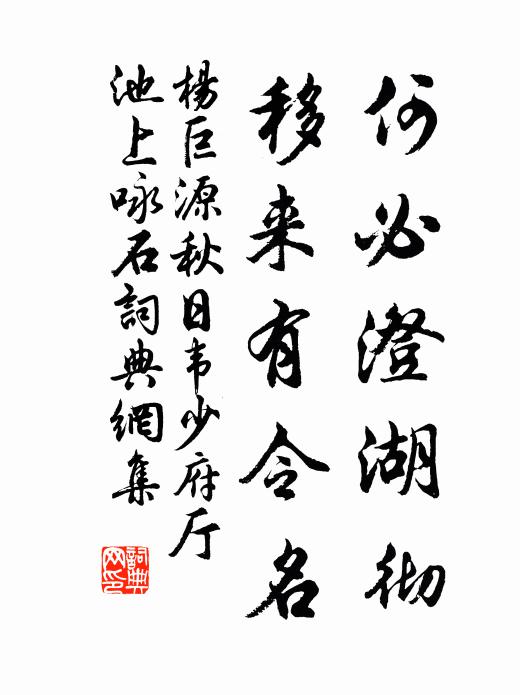 何必澄湖彻
移来有令名
杨巨源秋日韦少府厅
池上咏石詞典網集
詞典
网印